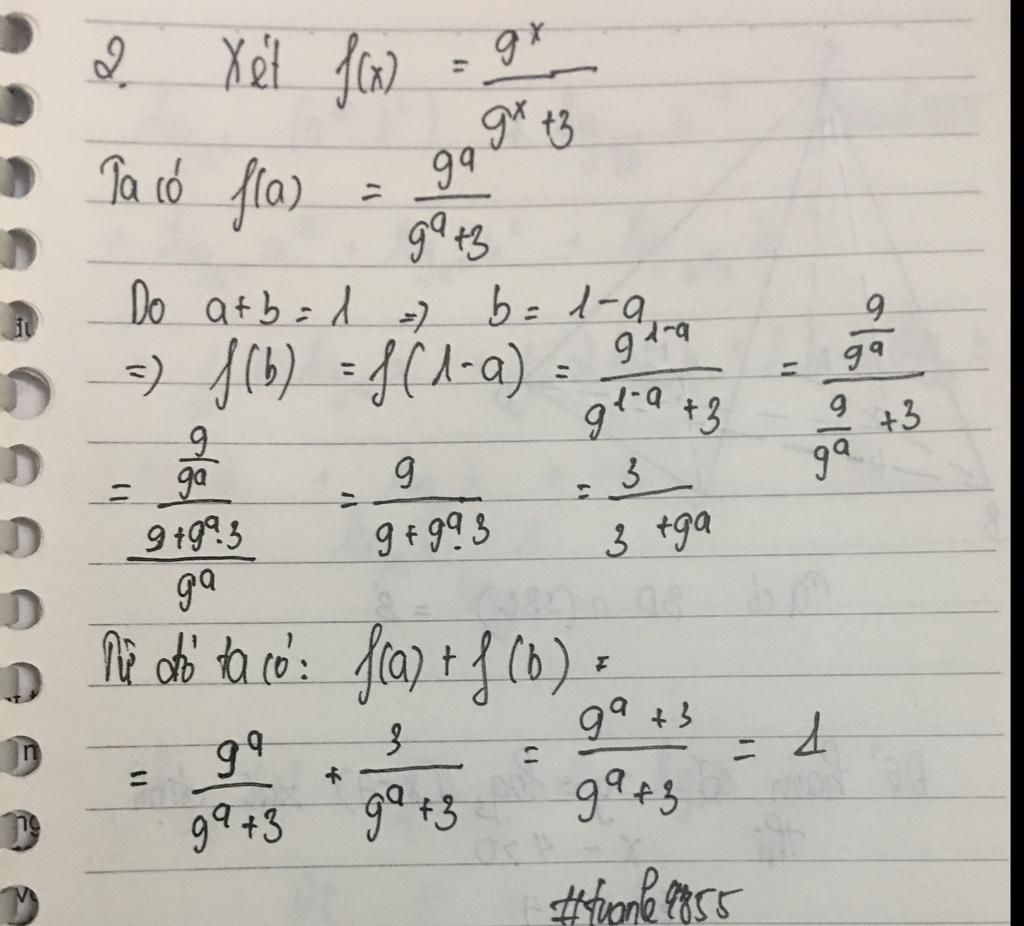 2. Xét f(x) = 9^x / (9^x + 3)
Ta có f(a) = 9^a / (9^a + 3)
Do a + b = 1 => b = 1 - a
=> f(b) = f(1 - a) = 9^(1-a) / (9^(1-a) + 3) = (9/9^a) / (9/9^a + 3)
= (9/9^a) / ((9 + 9^a . 3)/9^a) = 9 / (9 + 9^a . 3) = 3 / (3 + 9^a)
Từ đó ta có: f(a) + f(b) =
= 9^a / (9^a + 3) + 3 / (9^a + 3) = (9^a + 3) / (9^a + 3) = 1
#tuanle9855